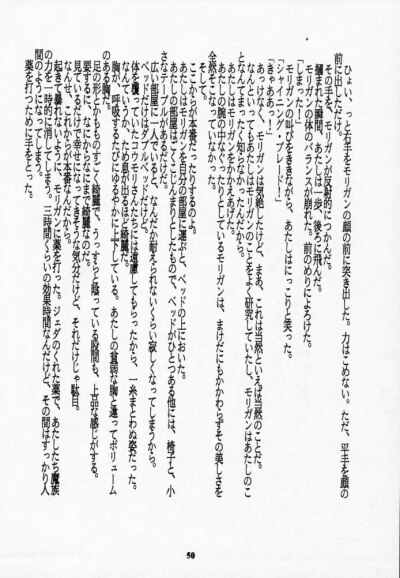 ひょい、っと右手をモリガンの顔の前に突き出した。力はこめない。ただ、平手を顔の
前に出しただけ。
その手を、モリガンが反射的につかんだ。
掴まれた瞬間、あたしは一歩、後ろに飛んだ。
モリガンの体のバランスが崩れた。前のめりによろけた。
「しまった！」
「シャイニィ・ブレード！」
「きゃああっ！」
モリガンの叫びをききながら、あたしはにっこりと笑った。
あっけなく、モリガンは気絶したけど、まあ、これは当然といえば当然のことだ。
なんといってもあたしはモリガンのことをよく研究していたし、モリガンはあたしのこ
となんてまったく知らなかったんだから。
あたしはモリガンをかかえあげた。
あたしの腕の中なぐったりとしているモリガンは、まけだにもかかわらずその美しさを
全然そこなっていなかった。
そして。
ここからが本番だったりするのよ。
あたしはモリガンを自分の部屋に運ぶと、ベッドの上においた。
あたしの部屋はごくこじんまりとしたもので、ベッドがひとつある他には、椅子と、小
さなテーブルがあるだけだ。
広い部屋に一人でいると、なんだか耐えられないくらい寂しくなってしまうから。
ベッドだけはダブルベッドだけど。
体を覆っていたコウモリさんたちには遠慮してもらったから、一糸まとわぬ姿だった。
なんていうか、ため息が出るほど綺麗だ。
胸が、呼吸するたびにゆるやかに上下している。あたしの貧弱な胸と違ってボリューム
のある胸だ。
足の形とかものすごく綺麗で、うっすらと陰っている股間も、上品な感じがする。
要するに、なにからなにまで綺麗なのだ。
見ているだけで幸せになってきそうな気分だけど、それだけじゃ駄目。
なんせ、これからが本番なんだから。
起きて暴れないように、モリガンに薬を打った。ジェダのくれた薬で、あたしたち魔族
の力を一時的に消してしまう。三時間くらいの効果時間なんだけど、その間はすっかり人
間のようになってしまう。
薬を打つために手をとった。
50